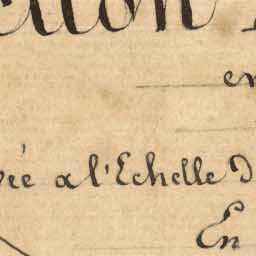 ction
en
vée a l'Echelle D
En